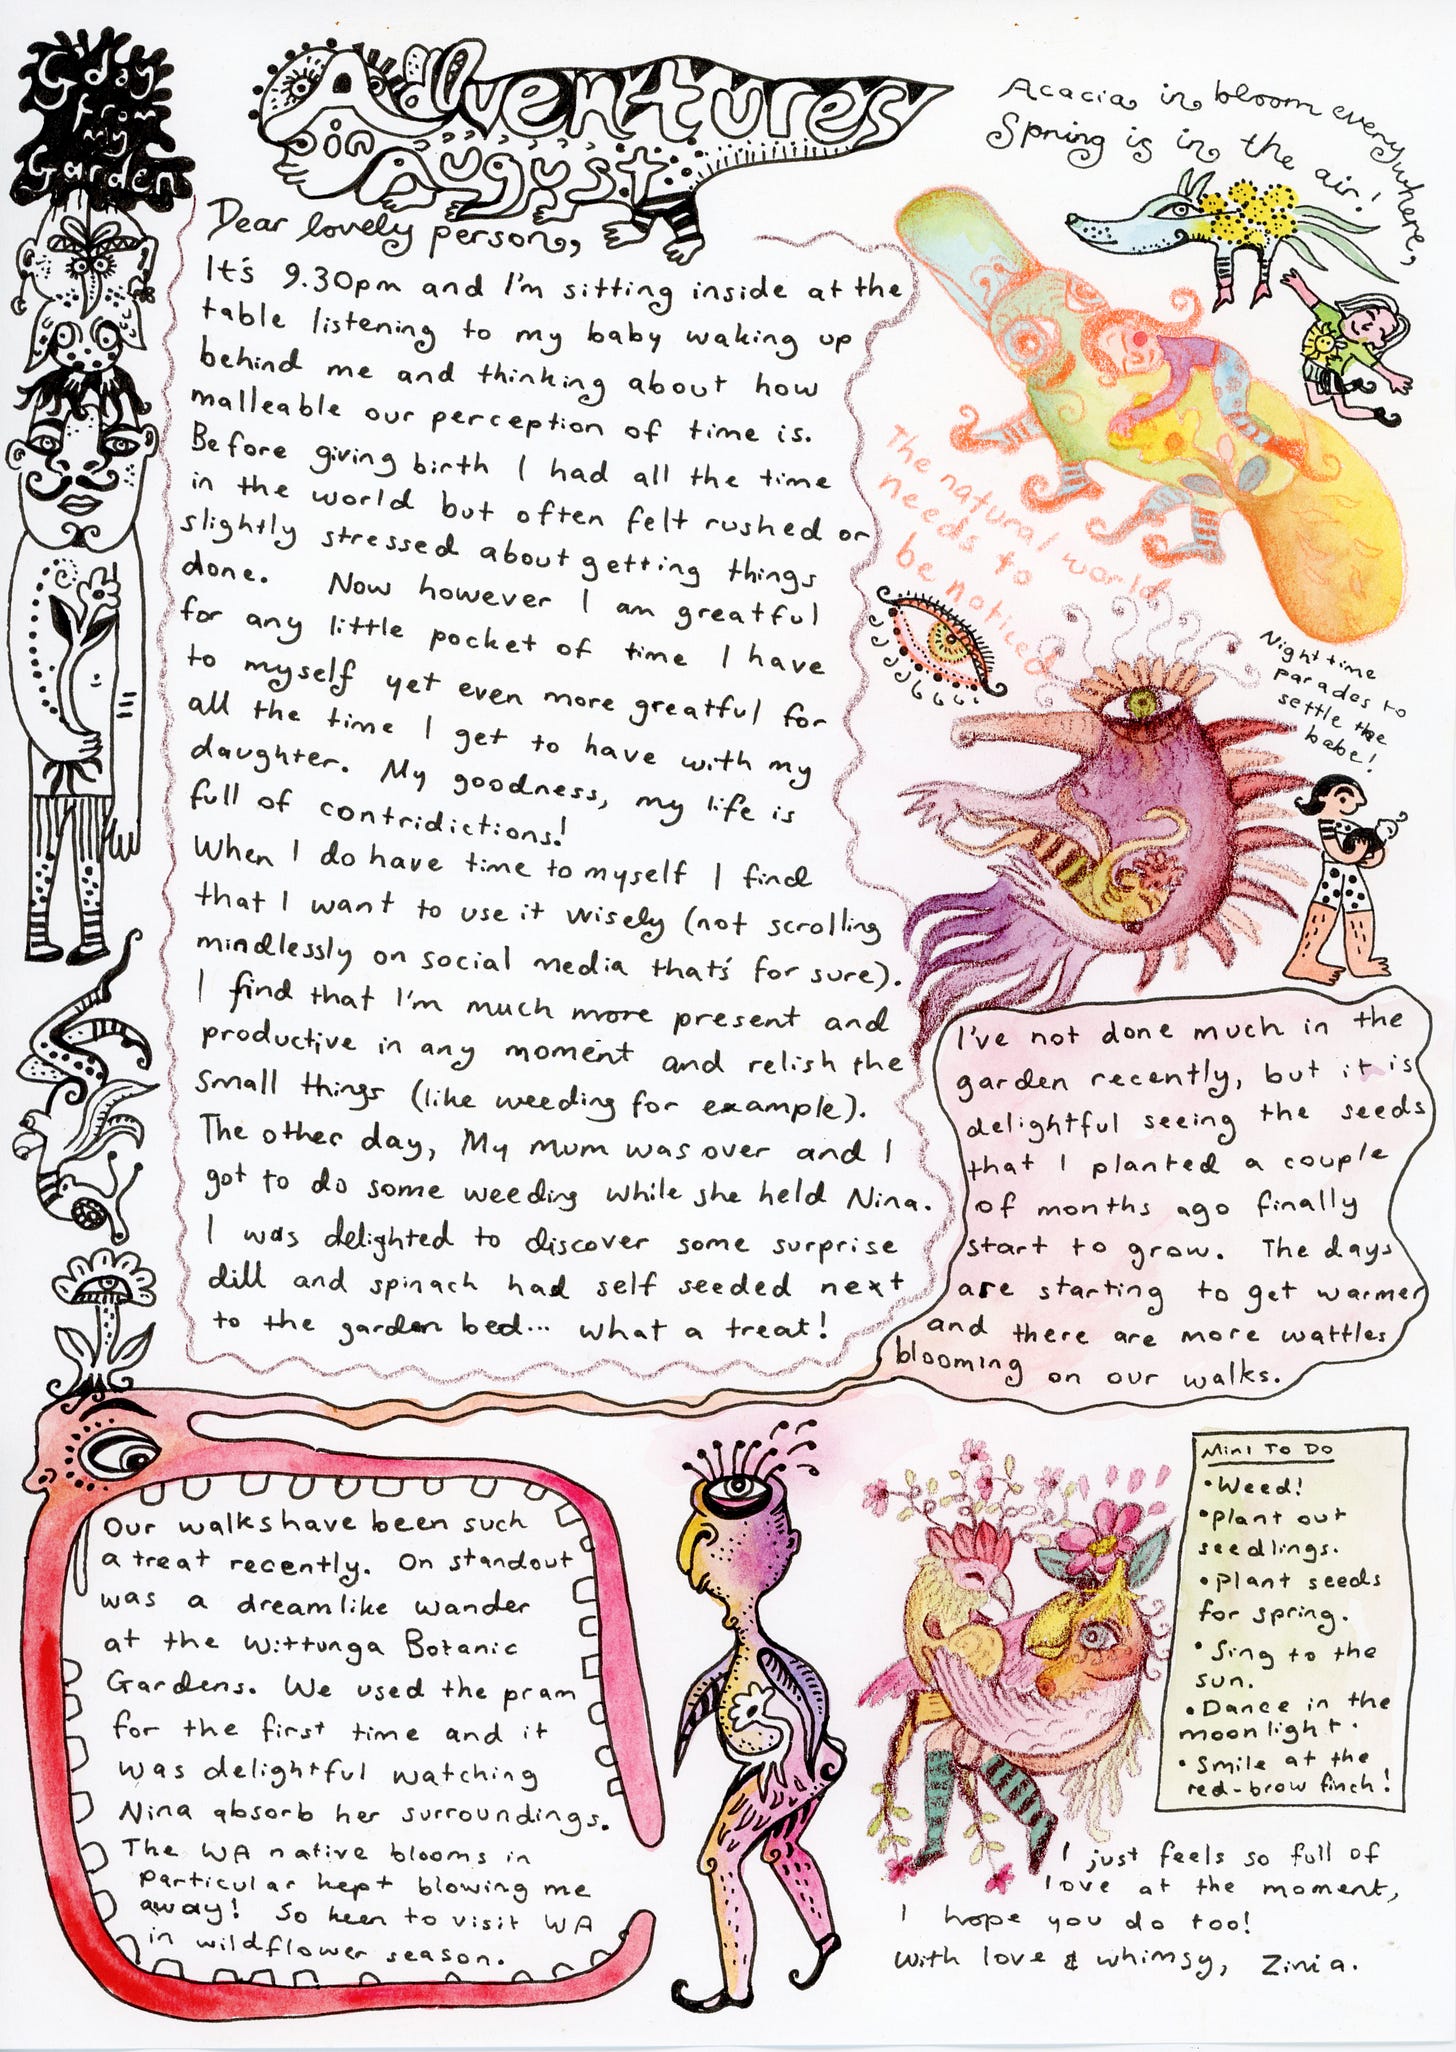 G'day
from
my
Garden
Adventures
in
August
Acacia in bloom everywhere,
Spring is in the air!
Dear lovely person,
It's 9.30pm and I'm sitting inside at the
table listening to my baby waking up
behind me and thinking about how
malleable our perception of time is.
Before giving birth I had all the time
in the world but often felt rushed or
slightly stressed about getting things
done. Now however I am greatful
for any little pocket of time I have
to myself yet even more greatful for
all the time I get to have with my
daughter. My goodness, my life is
full of contridictions!
When I do have time to myself I find
that I want to use it wisely (not scrolling
mindlessly on social media that's for sure).
I find that I'm much more present and
productive in any moment and relish the
small things (like weeding for example).
The other day, My Mum was over and I
got to do some weeding while she held Nina.
I was delighted to discover some surprise
dill and spinach had self seeded next
to the garden bed... what a treat!
The natural world
needs to
be noticed
Night time
parades to
settle the
babe!
I've not done much in the
garden recently, but it is
delightful seeing the seeds
that I planted a couple
of months ago finally
start to grow. The days
are starting to get warmer
and there are more wattles
blooming on our walks.
Our walks have been such
a treat recently. On standout
was a dreamlike wander
at the Wittunga Botanic
Gardens. We used the pram
for the first time and it
was delightful watching
Nina absorb her surroundings.
The WA native blooms in
particular kept blowing me
away! So keen to visit WA
in wildflower season.
Mini To Do
• Weed!
• Plant out
seedlings.
• Plant seeds
for spring.
• Sing to the
sun.
• Dance in the
moonlight.
• Smile at the
red-brow finch!
I just feels so full of
love at the moment,
I hope you do too!
With love & whimsy, Zinia.